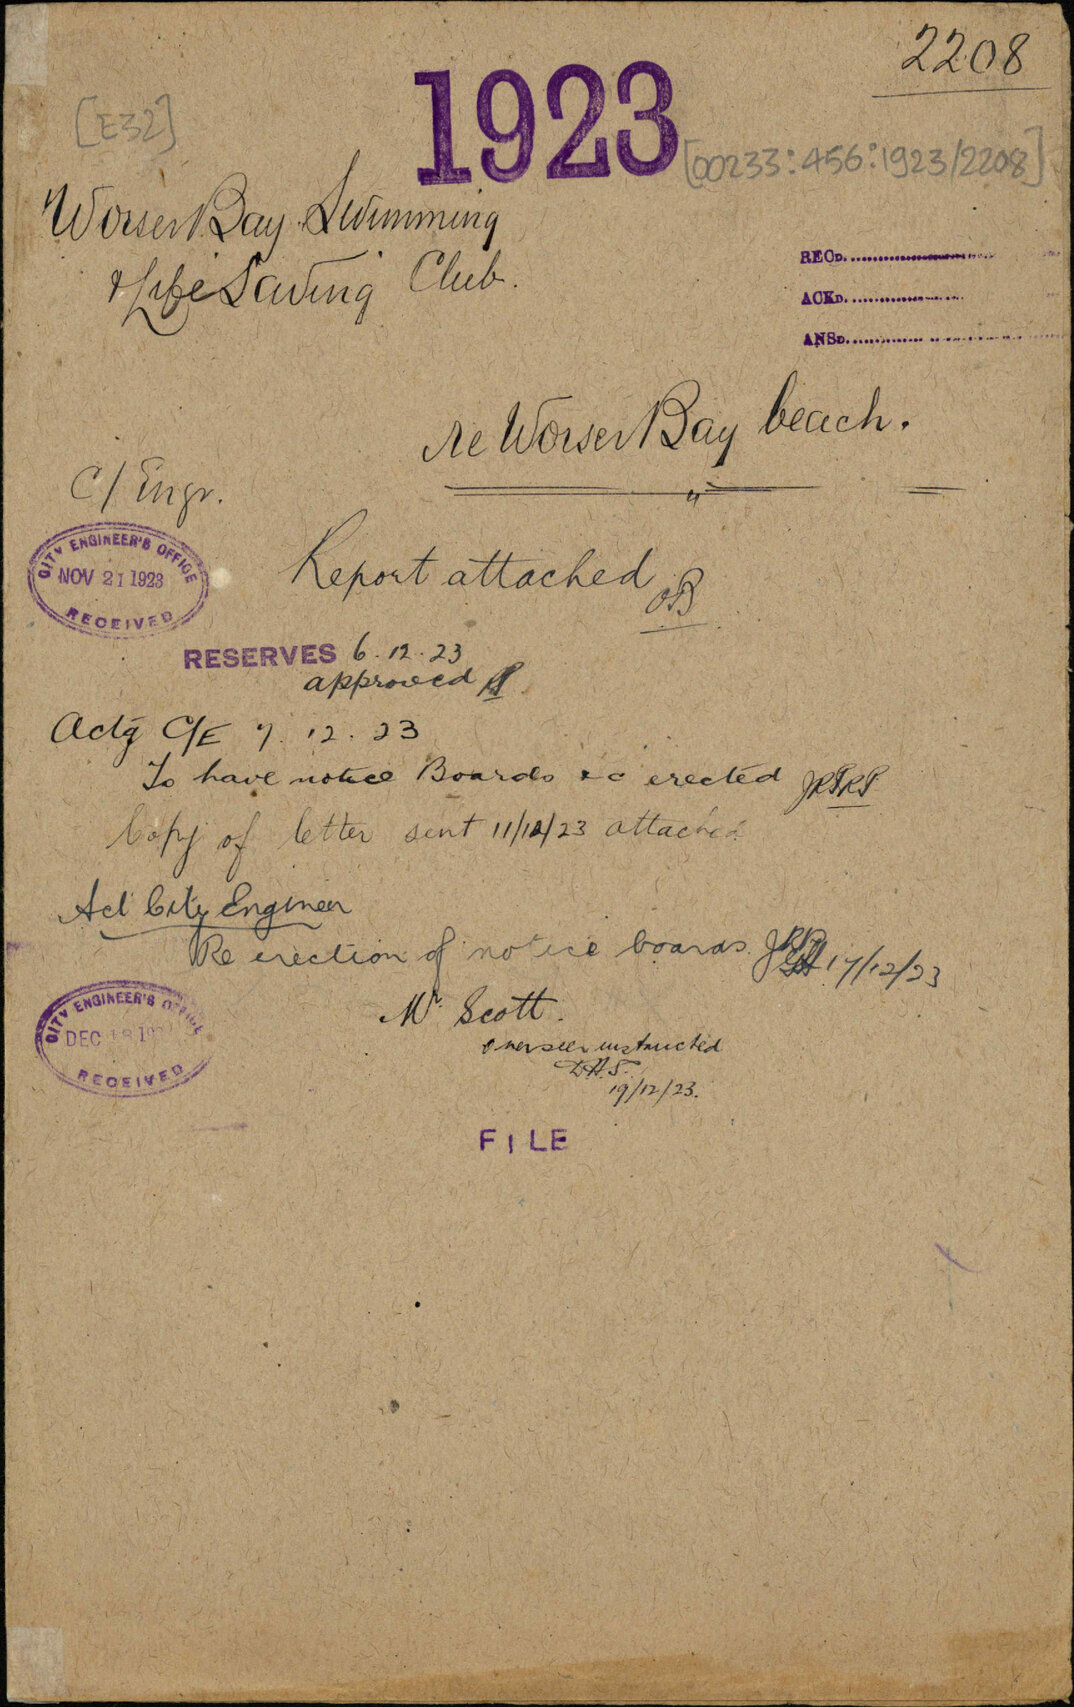 2208
1923
[E32]
[00233:456:1923/2208]
Worser Bay Swimming
& Life Saving Club.
RECD.
ACKD.
ANSD.
re Worser Bay beach.
C/Engr.
CITY ENGINEER'S OFFICE
NOV 21 1923
RECEIVED
Report attached
RESERVES 6.12.23
approved
Actg C/E 7.12.23
To have notice Boards &c erected
Copy of letter sent 11/12/23 attached
Act City Engineer
Re erection of notice boards. 17/12/23
CITY ENGINEER'S OFFICE
DEC 18 192
RECEIVED
Mr Scott.
Overseer instructed
19/12/23.
FILE